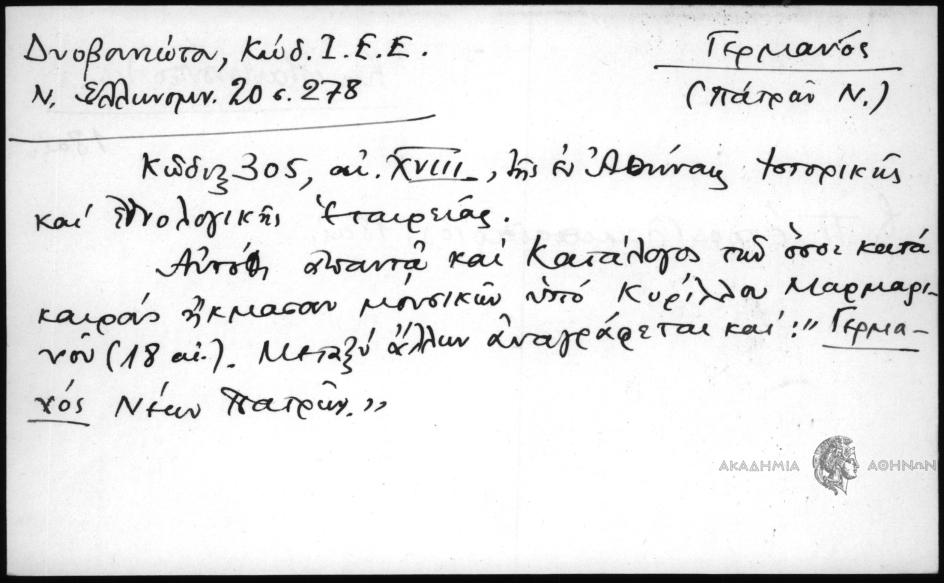 Δυοβουνιώτου, Κώδ. Ι. Ε. Ε.
Ν. Ἑλληνομν. 20 σ. 278
Γερμανός
(Πατρῶν Ν.)
Κῶδιξ 305, αἰ. XVIII, τῆς ἐν Ἀθήναις Ἱστορικῆς
καὶ Ἐθνολογικῆς Ἑταιρείας.
Αὐτόθι ἀπαντᾷ καὶ Κατάλογος τῶν ὅσοι κατὰ
καιροὺς ἤκμασαν μουσικῶν ὑπὸ Κυρίλλου Μαρμαρι-
νοῦ (18 αἰ.). Μεταξὺ ἄλλων ἀναγράφεται καὶ: „Γερμα-
νός Νέων Πατρῶν."
ΑΚΑΔΗΜΙΑ ΑΘΗΝΩΝ